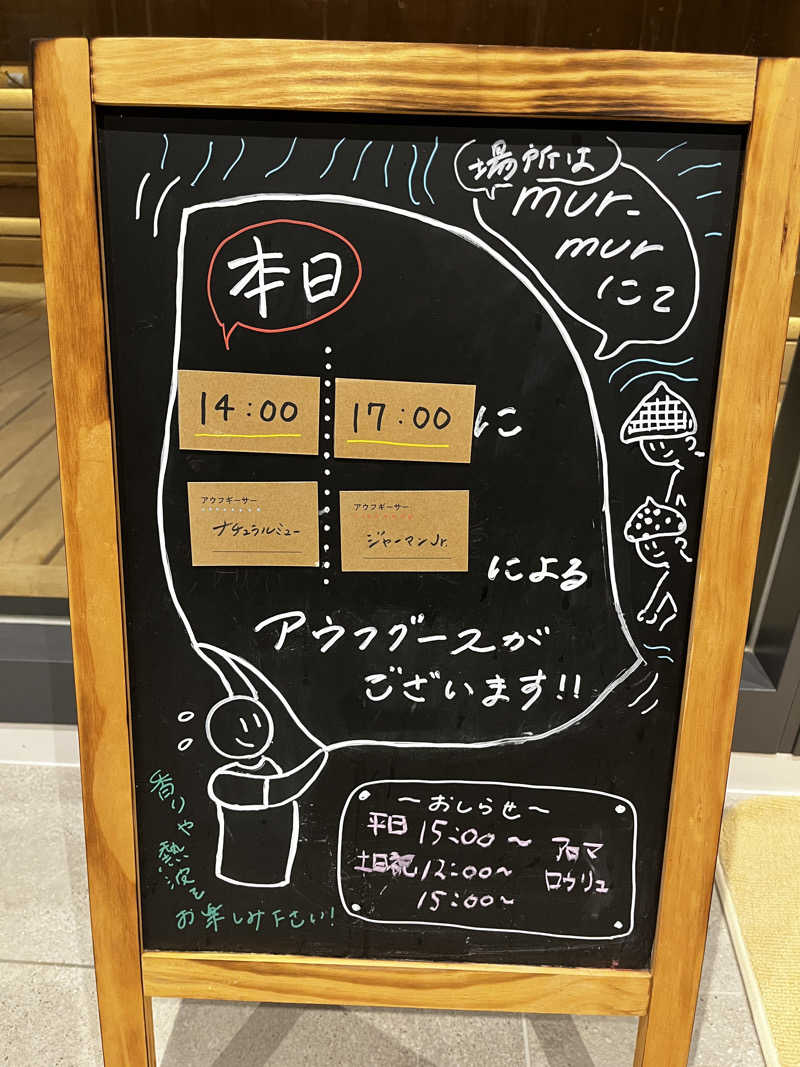 場所は
mur-
mur
にて
本日
14:00
17:00に
アウフギーサー
ナチュラルミュー
アウフギーサー
ジャーマンJr.
による
アウフグースが
ございます!!
〜おしらせ〜
平日 15:00〜
土日祝 12:00〜
15:00〜
アロマ
ロウリュ
香りや
熱波を
お楽しみ下さい!